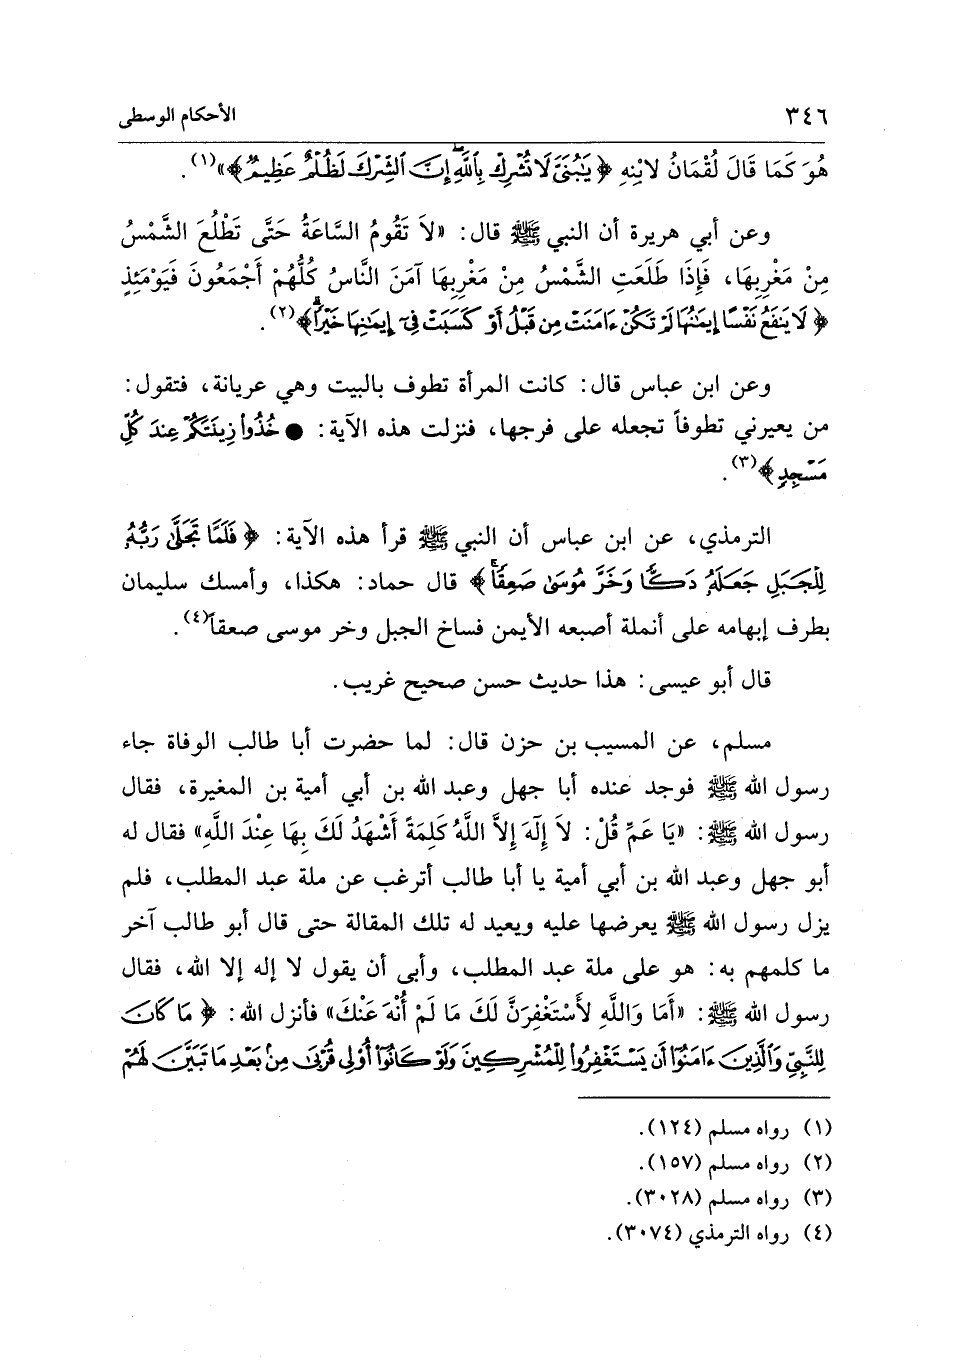 ٣٤٦ الأحكام الوسطى
هُوَ كَمَا قَالَ لُقْمَانُ لابْنِهِ ﴿ يَبُنَىَّ لَا تُشْرِكْ بِاللَّهِ إِنَّ الشِّرْكَ لَظُلْمٌ عَظِيمٌ ﴾»(١).
وعن أبي هريرة أن النبي ﷺ قال: «لاَ تَقُومُ السَّاعَةُ حَتَّى تَطْلُعَ الشَّمْسُ
مِنْ مَغْرِبِهَا، فَإِذَا طَلَعَتِ الشَّمْسُ مِنْ مَغْرِبِهَا آمَنَ النَّاسُ كُلُّهُمْ أَجْمَعُونَ فَيَوْمَئِذٍ
﴿ لَا يَنفَعُ نَفْسًا إِيمَٰنُهَا لَمْ تَكُنْ ءَامَنَتْ مِن قَبْلُ أَوْ كَسَبَتْ فِىٓ إِيمَٰنِهَا خَيْرًاۗ ﴾(٢).
وعن ابن عباس قال: كانت المرأة تطوف بالبيت وهي عريانة، فتقول:
من يعيرني تطوفاً تجعله على فرجها، فنزلت هذه الآية: ● خُذُوا۟ زِينَتَكُمْ عِندَ كُلِّ
مَسْجِدٍ ﴾(٣).
الترمذي، عن ابن عباس أن النبي ﷺ قرأ هذه الآية: ﴿ فَلَمَّا تَجَلَّىٰ رَبُّهُۥ
لِلْجَبَلِ جَعَلَهُۥ دَكًّا وَخَرَّ مُوسَىٰ صَعِقًاۚ ﴾ قال حماد: هكذا، وأمسك سليمان
بطرف إبهامه على أنملة أصبعه الأيمن فساخ الجبل وخر موسى صعقاً(٤).
قال أبو عيسى: هذا حديث حسن صحيح غريب.
مسلم، عن المسيب بن حزن قال: لما حضرت أبا طالب الوفاة جاء
رسول الله ﷺ فوجد عنده أبا جهل وعبد الله بن أبي أمية بن المغيرة، فقال
رسول الله ﷺ: «يَا عَمِّ قُلْ: لاَ إِلَهَ إِلاَّ اللَّهُ كَلِمَةً أَشْهَدُ لَكَ بِهَا عِنْدَ اللَّهِ» فقال له
أبو جهل وعبد الله بن أبي أمية يا أبا طالب أترغب عن ملة عبد المطلب، فلم
يزل رسول الله ﷺ يعرضها عليه ويعيد له تلك المقالة حتى قال أبو طالب آخر
ما كلمهم به: هو على ملة عبد المطلب، وأبى أن يقول لا إله إلا الله، فقال
رسول الله ﷺ: «أَمَا وَاللَّهِ لأَسْتَغْفِرَنَّ لَكَ مَا لَمْ أُنْهَ عَنْكَ» فأنزل الله: ﴿ مَا كَانَ
لِلنَّبِىِّ وَالَّذِينَ ءَامَنُوٓا۟ أَن يَسْتَغْفِرُوا۟ لِلْمُشْرِكِينَ وَلَوْ كَانُوٓا۟ أُو۟لِى قُرْبَىٰ مِنۢ بَعْدِ مَا تَبَيَّنَ لَهُمْ
(١) رواه مسلم (١٢٤).
(٢) رواه مسلم (١٥٧).
(٣) رواه مسلم (٣٠٢٨).
(٤) رواه الترمذي (٣٠٧٤).